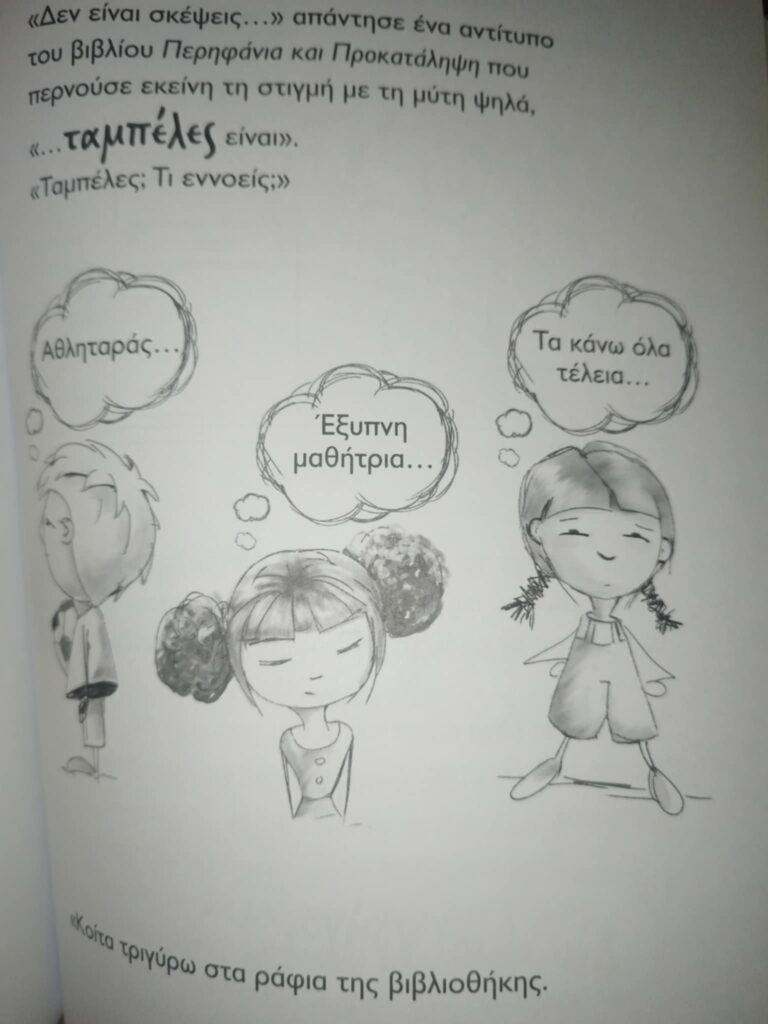 «Δεν είναι σκέψεις...» απάντησε ένα αντίτυπο
του βιβλίου Περηφάνια και Προκατάληψη που
περνούσε εκείνη τη στιγμή με τη μύτη ψηλά,
«...ταμπέλες είναι».
«Ταμπέλες; Τι εννοείς;»
Αθληταράς...
Έξυπνη
μαθήτρια...
Τα κάνω όλα
τέλεια...
«Κοίτα τριγύρω στα ράφια της βιβλιοθήκης.